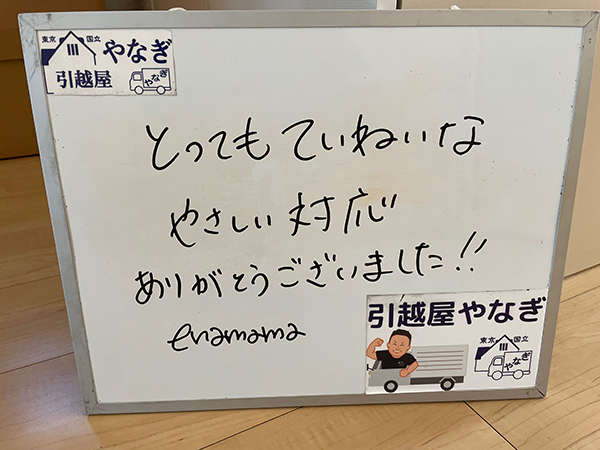 東京 国立 やなぎ
引越屋 やなぎ
とってもていねいな
やさしい対応
ありがとうございました!!
enamama
引越屋やなぎ
東京 国立
やなぎ